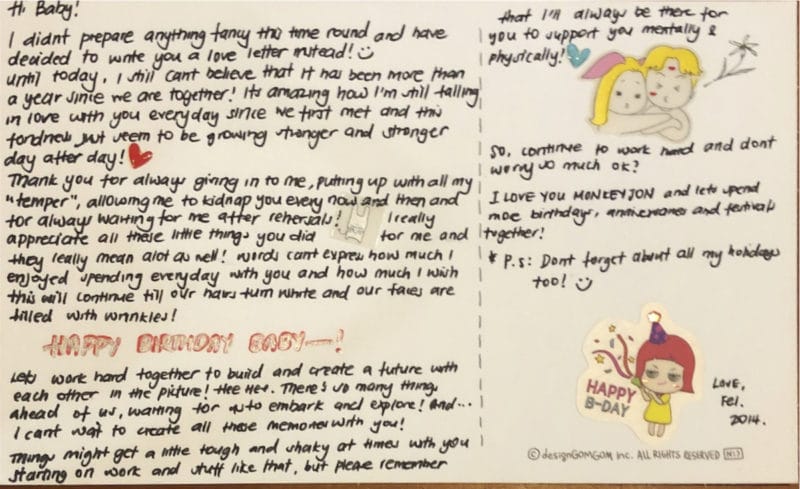 Hi Baby!
I didnt prepare anything fancy this time round and have
decided to write you a love letter instead!
until today, I still cant believe that it has been more than
a year since we are together! Its amazing how I'm still falling
in love with you everyday since we first met and this
fondness just seem to be growing stronger and stronger
day after day!
Thank you for always giving in to me, putting up with all my
"temper", allowing me to kidnap you every now and then and
for always waiting for me after rehersals! I really
appreciate all these little things you did for me and
they really mean alot as well! Words cant express how much I
enjoyed spending everyday with you and how much I wish
this will continue till our hairs turn white and our faces are
filled with wrinkles!
HAPPY BIRTHDAY BABY~!
Lets work hard together to build and create a future with
each other in the picture! Hee Hee. There's so many things
ahead of us, waiting for us to embark and explore! And...
I cant wait to create all these memories with you!
Things might get a little tough and shaky at times with you
starting on work and stuff like that, but please remember
that I'll always be there for
you to support you mentally &
physically!
So, continue to work hard and dont
worry so much ok?
I LOVE YOU MONKEYJON and lets spend
more birthdays, anniversaries and festivals
together!
* P.s: Dont forget about all my holidays
too!
HAPPY
B-DAY
LOVE,
Fei.
2014.
©designGOMGOM Inc. ALL RIGHTS RESERVED N13